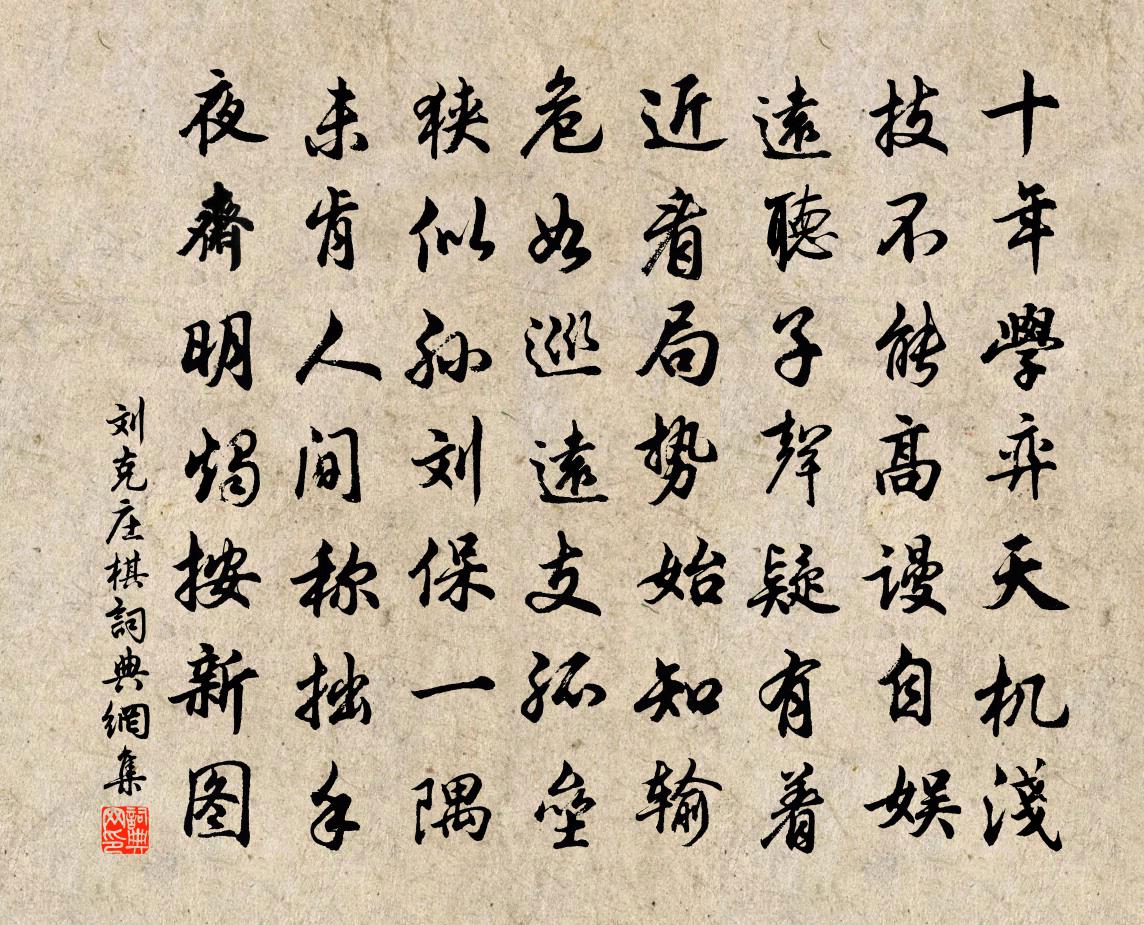 十年學弈天机淺
技不能高謾自娱
遠聽子聲疑有着
近看局势始知输
危如巡遠支孤壘
狭似孙刘保一隅
未肯人间称拙手
夜齋明燭按新图
刘克庄棋詞典網集
詞典
网印